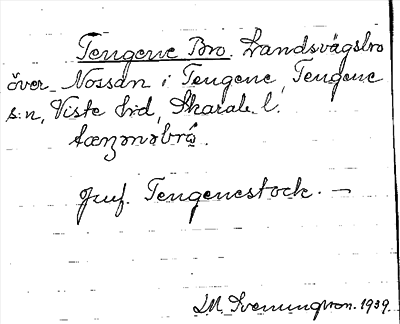 Tengene Bro. Landsvägsbro
över Nossan i Tengene, Tengene
s:n, Viste hd, Skarab. l.
Jmf. Tengenestock. –
1939.